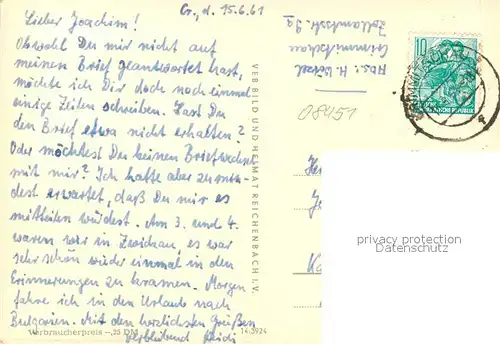 Cr., d. 15.6.61
Lieber Joachim!
Obwohl Du mir nicht auf
meinen Brief geantwortet hast,
möchte ich Dir doch noch einmal
einige Zeilen schreiben. Hast Du
den Brief etwa nicht erhalten?
Oder möchtest Du keinen Briefwechsel
mit mir? Ich hatte aber zumin-
dest erwartet, daß Du mir es
mitteilen würdest. Am 3. und 4.
waren wir in Zwickau, es war
sehr schön wieder einmal in den
Erinnerungen zu kramen. Morgen
fahre ich in den Urlaub nach
Bulgarien. Mit den herzlichsten Grüßen
verbleibend Heidi
Verbraucherpreis -,25 DM
14/3924
VEB BILD UND HEIMAT REICHENBACH I. V.
Abs.: H. Wetzel
Crimmitschau
Zollamtsstr. 9a
08451
10
privacy protection
Datenschutz